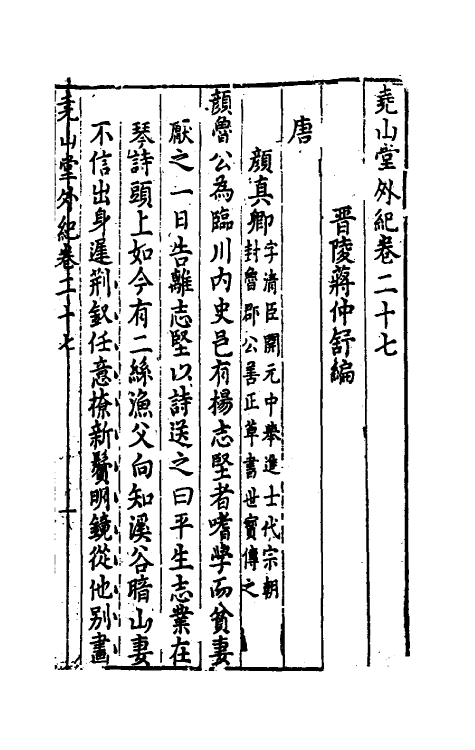 堯山堂外紀卷二十七
晋陵蔣仲舒編
唐
顔真卿字清臣開元中舉進士代宗朝
封魯郡公善正草書世寳傳之
顔魯公為臨川内史邑有楊志堅者嗜學而貧妻
厭之一日告離志堅以詩送之曰平生志業在
琴詩頭上如今有二絲漁父向知溪谷暗山妻
不信出身遲荆釵任意撩新鬢明鏡從他別畫
堯山堂外紀卷二十七 一